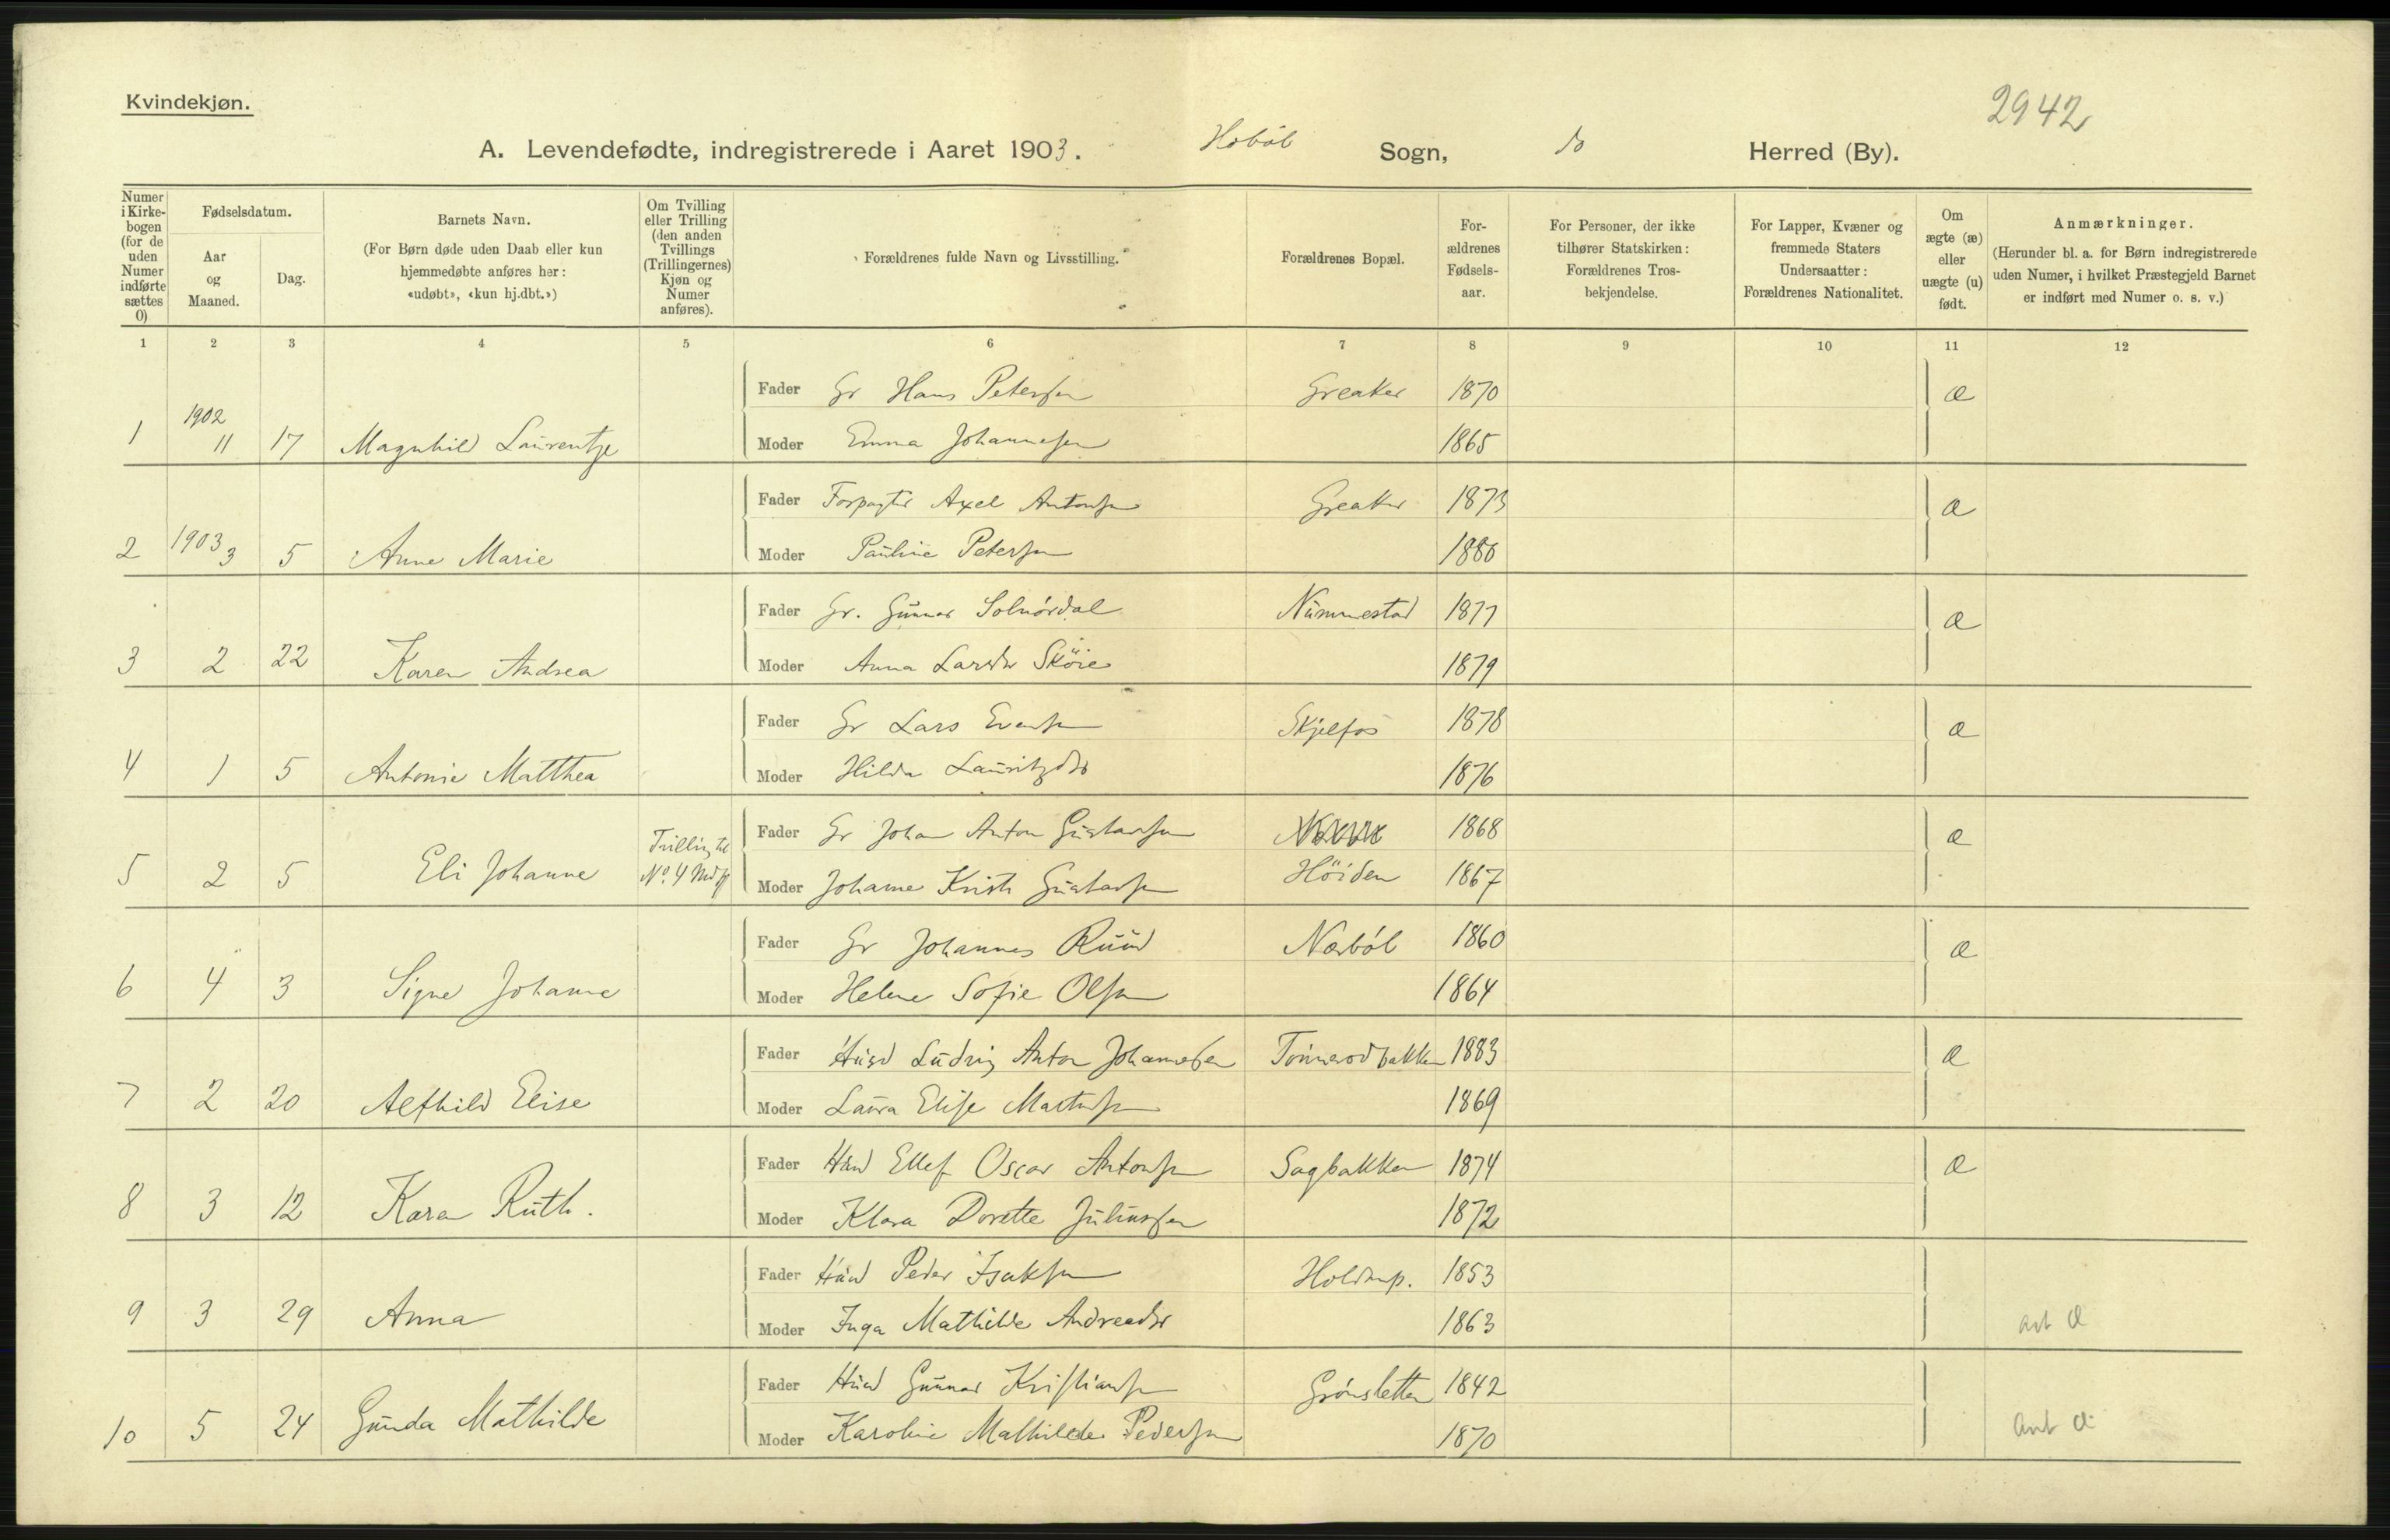 Kvindekjøn.
2942
A. Levendefødte, indregistrerede i Aaret 1903. Hobøl Sogn, do Herred (By).
Numer i Kirkebogen (for de uden Numer indførte sættes 0)
Fødselsdatum.
Aar og Maaned.
Dag.
Barnets Navn.
(For Børn døde uden Daab eller kun hjemmedøbte anføres her: «udøbt», «kun hj.dbt.»)
Om Tvilling eller Trilling (den anden Tvillings (Trillingernes) Kjøn og Numer anføres).
Forældrenes fulde Navn og Livsstilling.
Forældrenes Bopæl.
Forældrenes Fødselsaar.
For Personer, der ikke tilhører Statskirken: Forældrenes Trosbekjendelse.
For Lapper, Kvæner og fremmede Staters Undersaatter: Forældrenes Nationalitet.
Om ægte (æ) eller uægte (u) født.
Anmærkninger.
(Herunder bl. a. for Børn indregistrerede uden Numer, i hvilket Præstegjeld Barnet er indført med Numer o. s. v.)
1 2 3 4 5 6 7 8 9 10 11 12
Fader Gr Hans Petersen Greaker 1870 æ
1 1902 11 17 Magnhild Laurentze Moder Emma Johannesen 1865
Fader Forpagter Axel Antonsen Greaker 1873 æ
2 1903 3 5 Anne Marie Moder Pauline Petersen 1880
Fader Gr. Gunnar Solnördal Nummestad 1877 æ
3 2 22 Karen Andrea Moder Anna Larsdr Sköie 1879
Fader Gr Lars Evensen Skjelfos 1878 æ
4 1 5 Antonie Matthea Moder Hilda Lauritzdr 1876
Fader Gr Johan Anton Gustavsen 1868 æ
5 2 5 Eli Johanne Trilling til No. 4 Moder Johanne Kristi Gustavsen Höiden 1867
Fader Gr Johannes Ruud Norböl 1860 æ
6 4 3 Signe Johanne Moder Helene Sofie Olsen 1864
Fader Husd Ludvig Anton Johannesen Tonnerodbakken 1883 æ
7 2 20 Alfhild Elise Moder Laura Elise Martinsen 1869
Fader Husd Ellef Oscar Antonsen Sagbakken 1874 æ
8 3 12 Karen Ruth. Moder Klara Dorette Juliussen 1872
Fader Husd Peder Isaksen Holdmp. 1853
9 3 29 Anna Moder Inga Mathilde Andreasdr 1863 ant æ
Fader Husd Gunnar Kristiansen Grönsletten 1842
10 5 24 Gunda Mathilde Moder Karoline Mathilde Pedersen 1870 ant æ